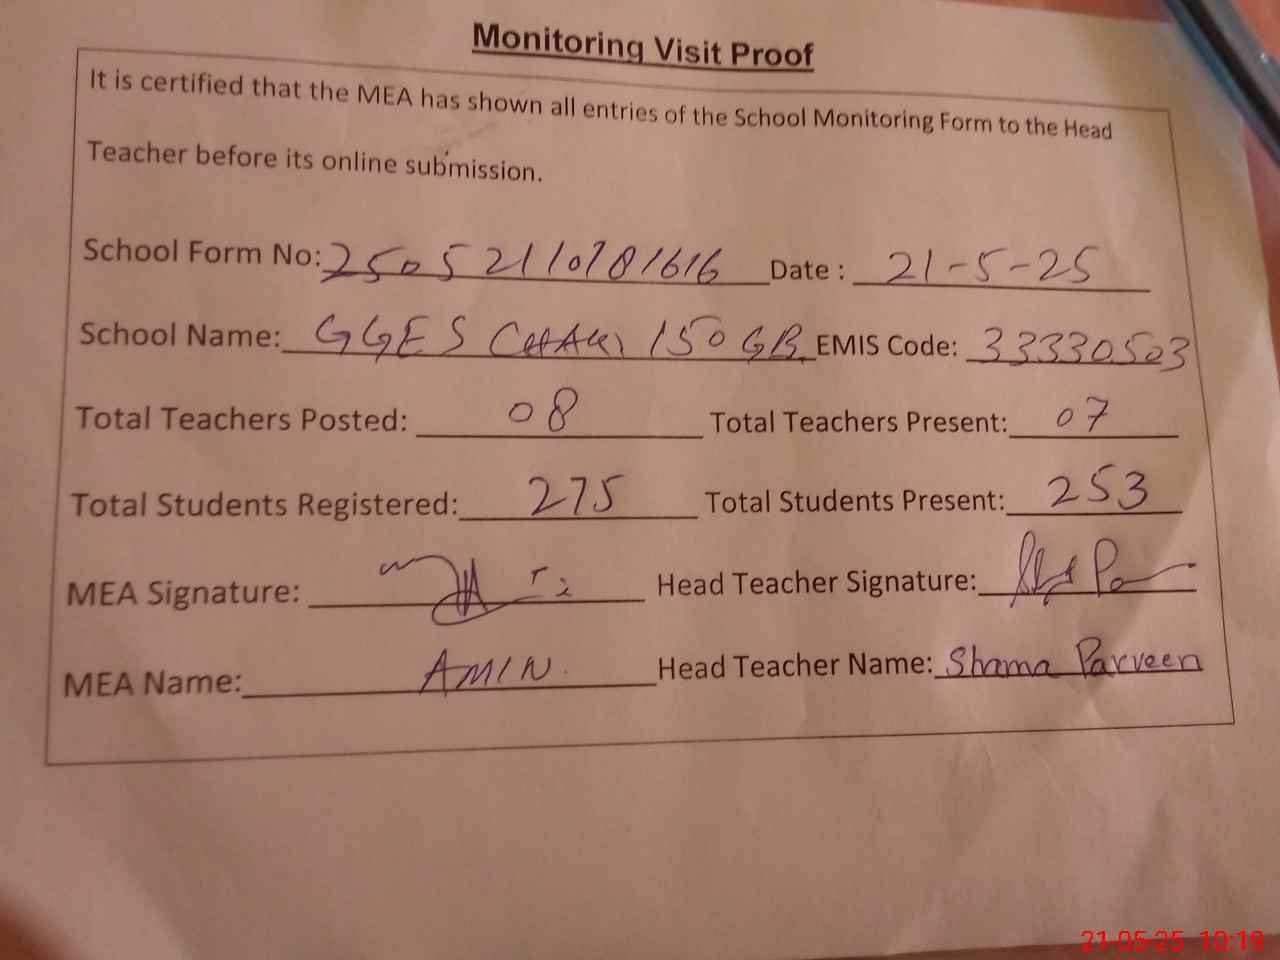 Monitoring Visit Proof
It is certified that the MEA has shown all entries of the School Monitoring Form to the Head
Teacher before its online submission.
School Form No: 25052110181616 Date : 21-5-25
School Name: GGES CHAK 150 GB EMIS Code: 33330503
Total Teachers Posted: 08 Total Teachers Present: 07
Total Students Registered: 275 Total Students Present: 253
MEA Signature: Head Teacher Signature:
MEA Name: AMIN. Head Teacher Name: Shama Parveen
21-05-25 10:19